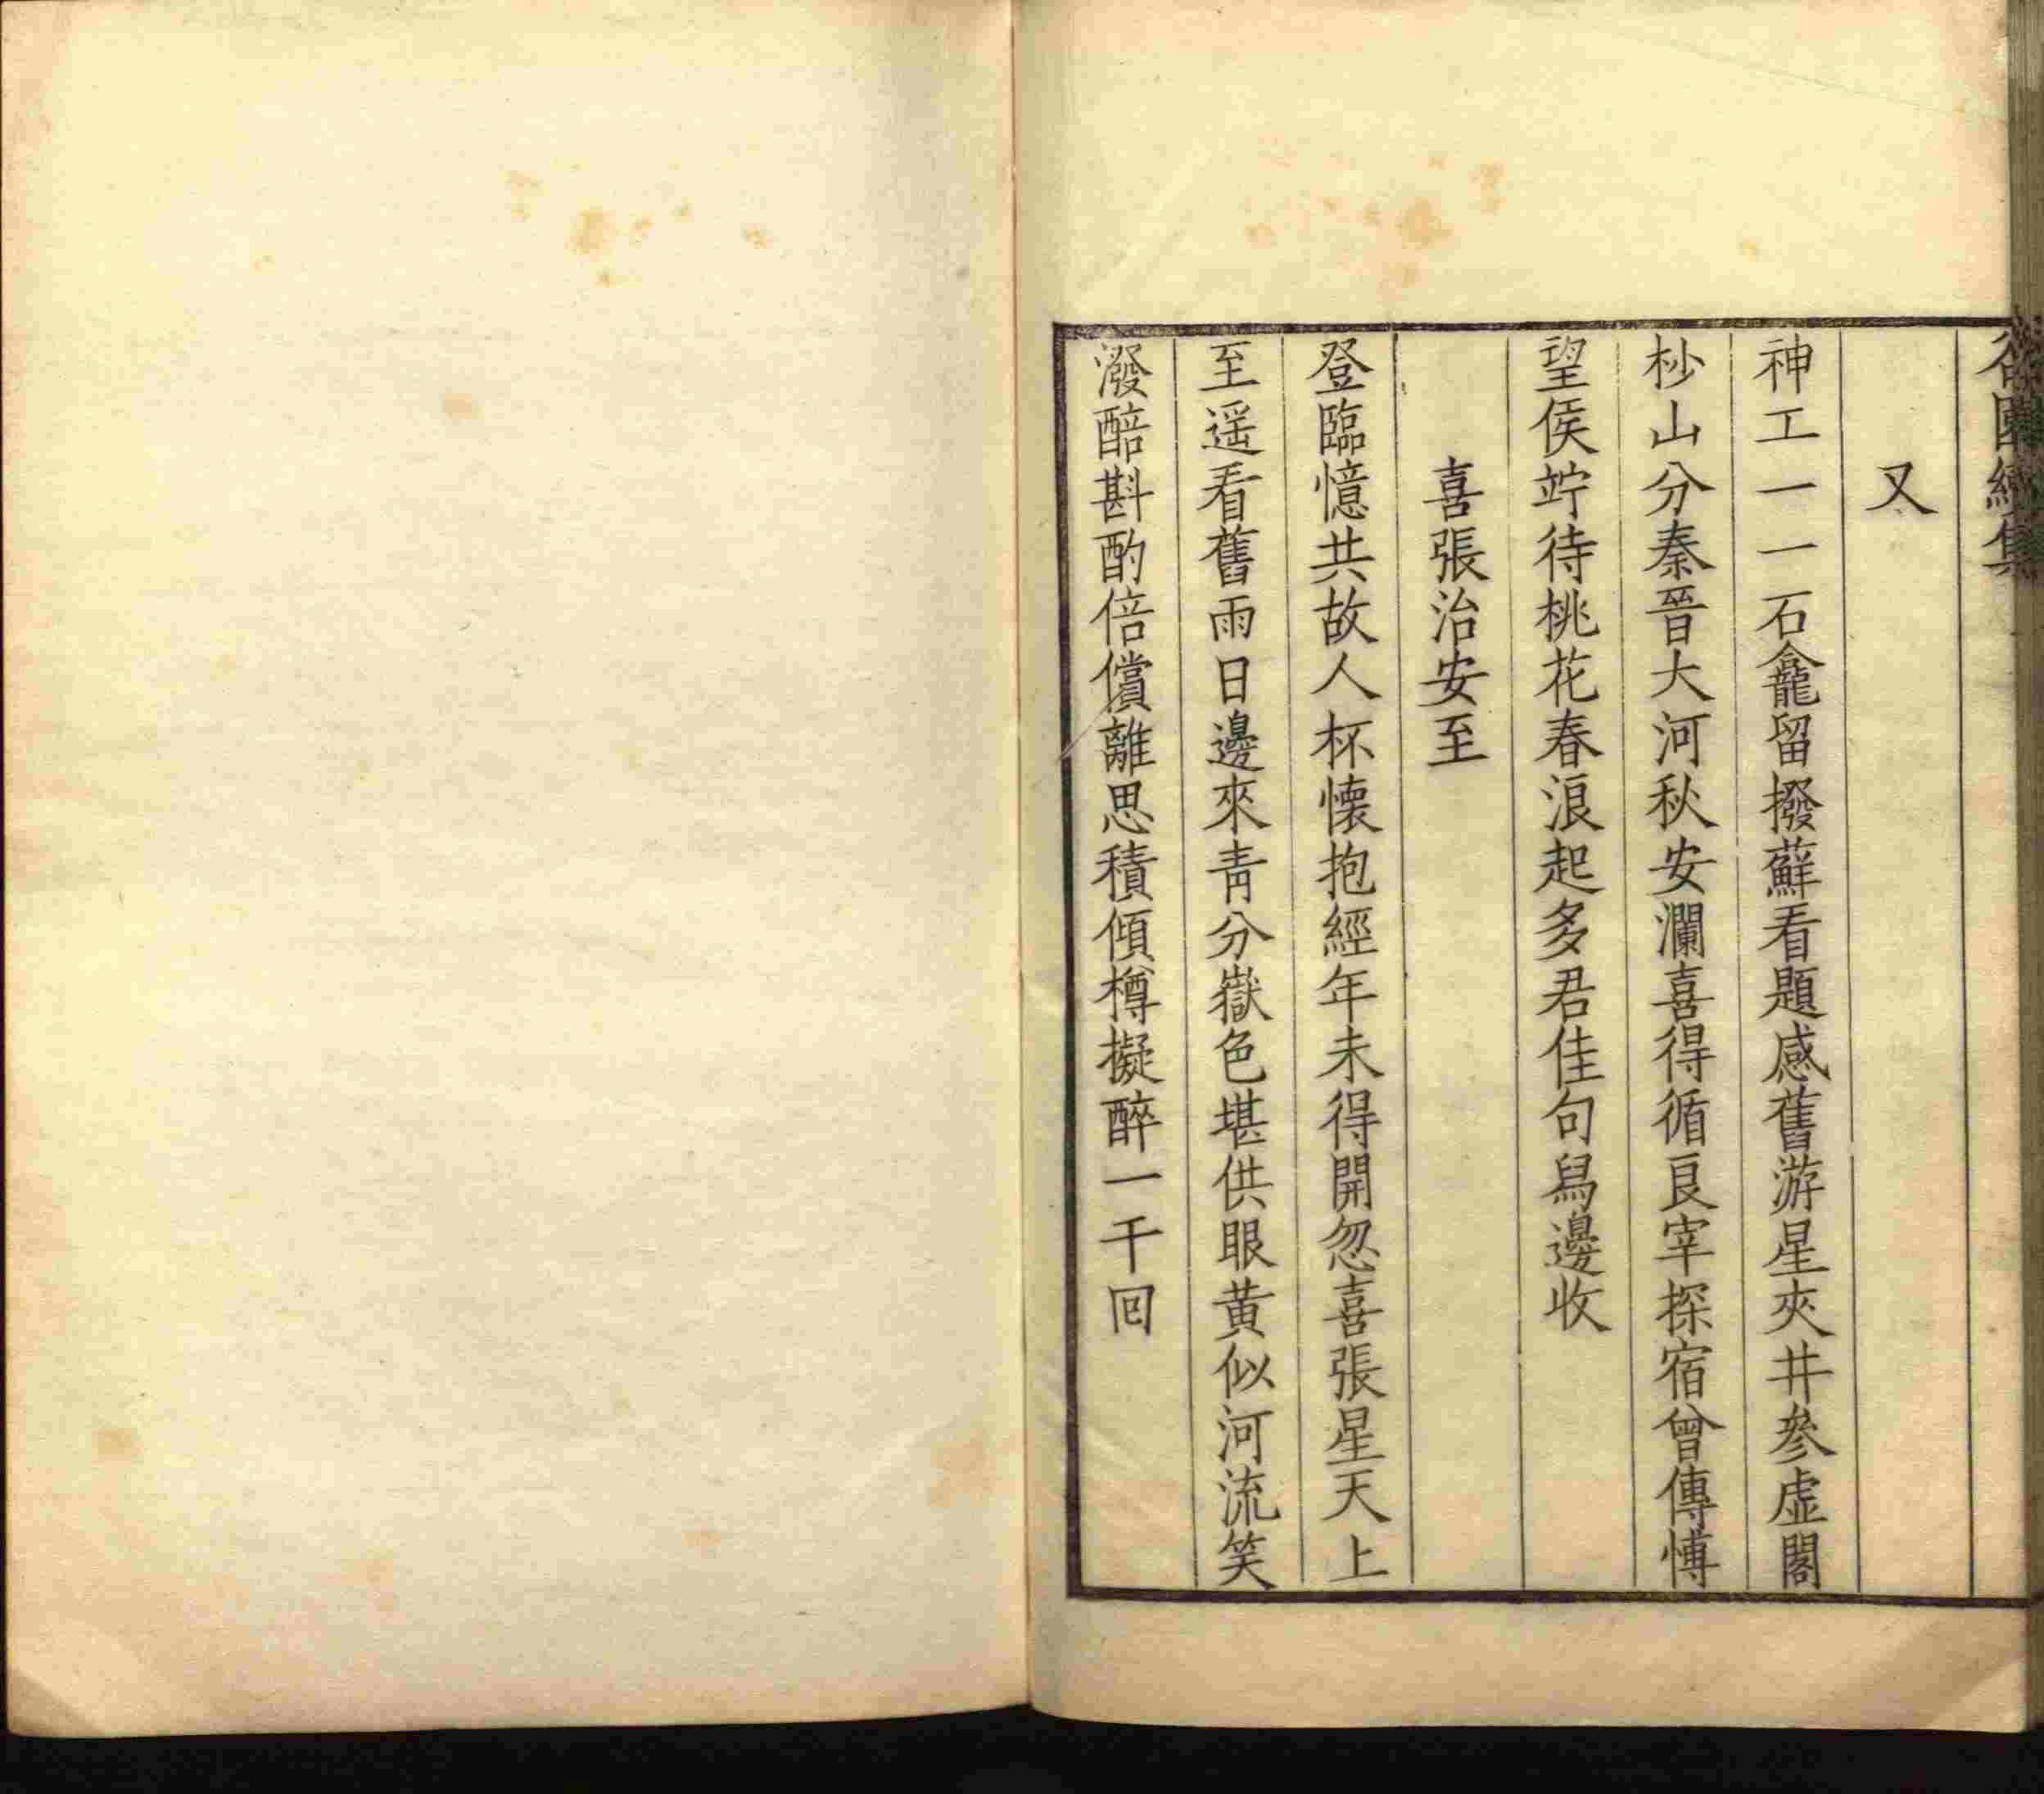 又
神工一一石龕留撥蘚看題感舊游星夾井參虛閣
杪山分秦晉大河秋安瀾喜得循良宰探宿曾傳愽
望侯竚待桃花春浪起多君佳句舄邊收
喜張治安至
登臨憶共故人杯懐抱經年未得開忽喜張星天上
至遥看舊雨日邊來青分嶽色堪供眼黄似河流笑
潑醅斟酌倍償離思積傾樽擬醉一千回